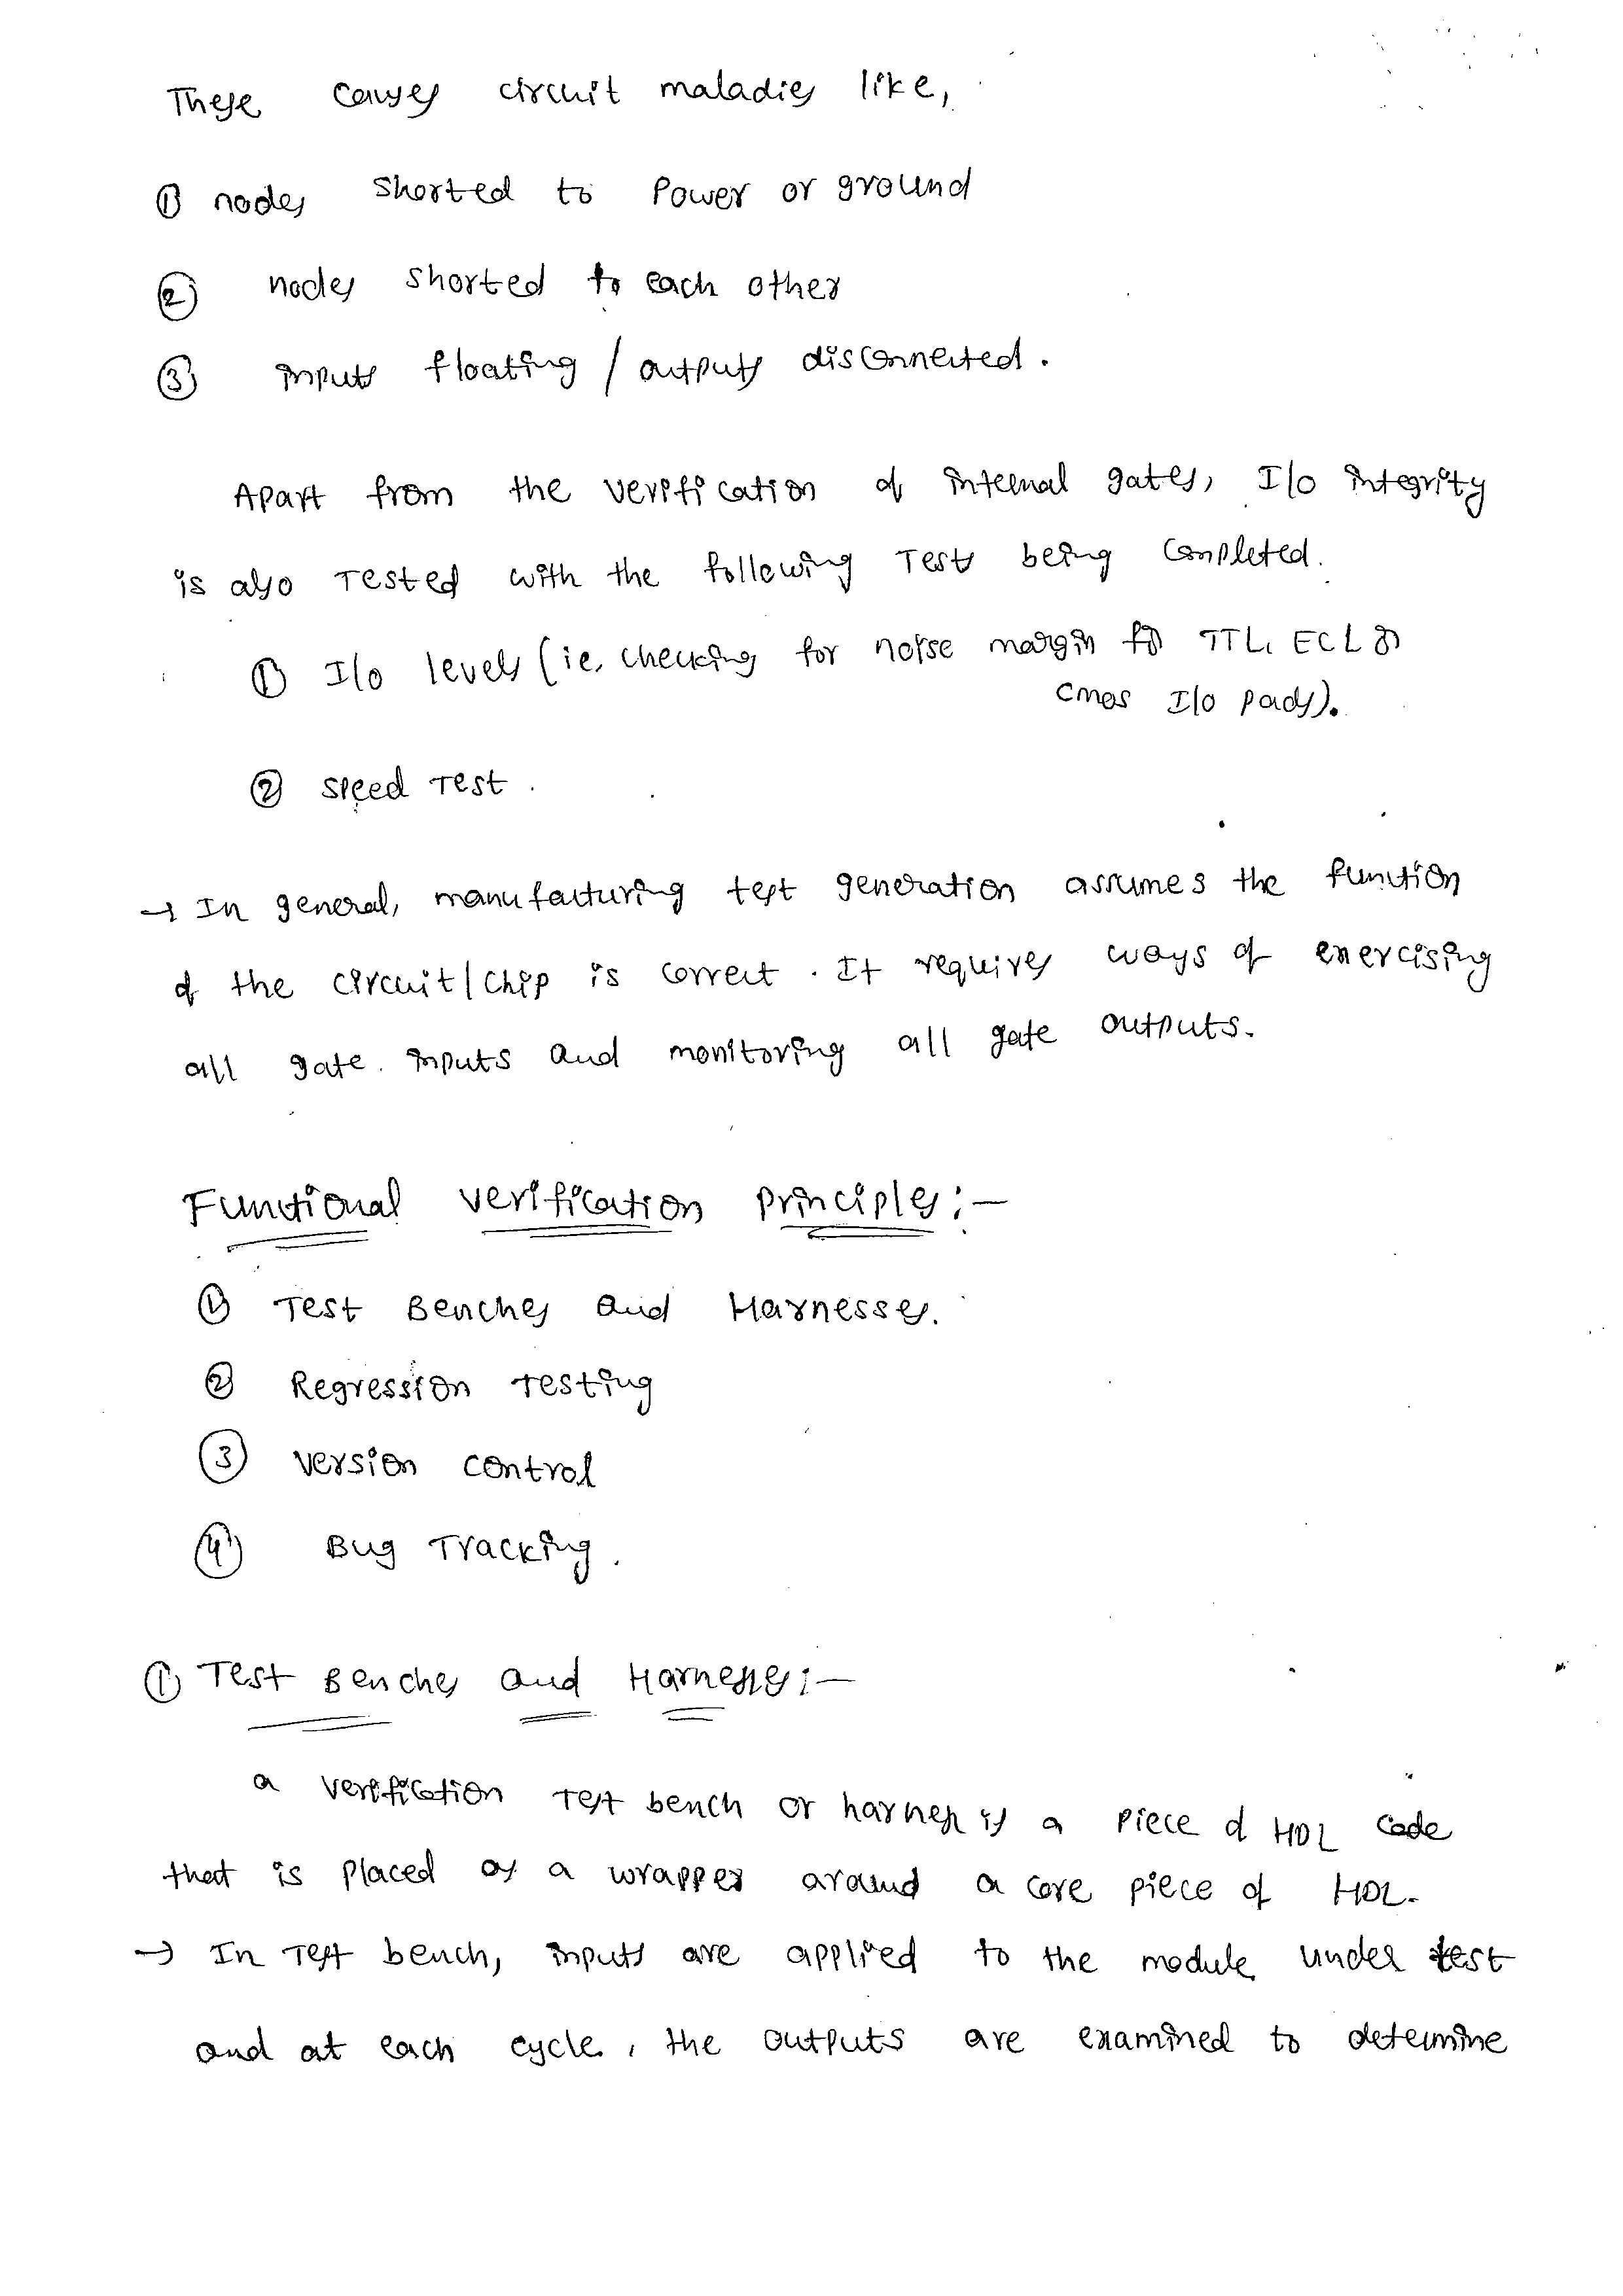 These causes circuit maladies like,
① nodes shorted to Power or ground
② nodes shorted to each other
③ inputs floating / outputs disconnected.
Apart from the verification of internal gates, I/o integrity
is also Tested with the following Tests being completed.
① I/o levels (ie, checking for noise margin for TTL, ECL or
cmos I/o pads).
② speed Test.
→ In general, manufacturing test generation assumes the function
of the circuit/chip is correct. It requires ways of exercising
all gate inputs and monitoring all gate outputs.
Functional verification principles:-
① Test Benches and Harnesses.
② Regression Testing
③ version control
④ Bug Tracking.
① Test Benches and Harnesses:-
a verification Test bench or harness is a piece of HDL code
that is placed as a wrapper around a core piece of HDL.
→ In Test bench, inputs are applied to the module under test
and at each cycle, the outputs are examined to determine